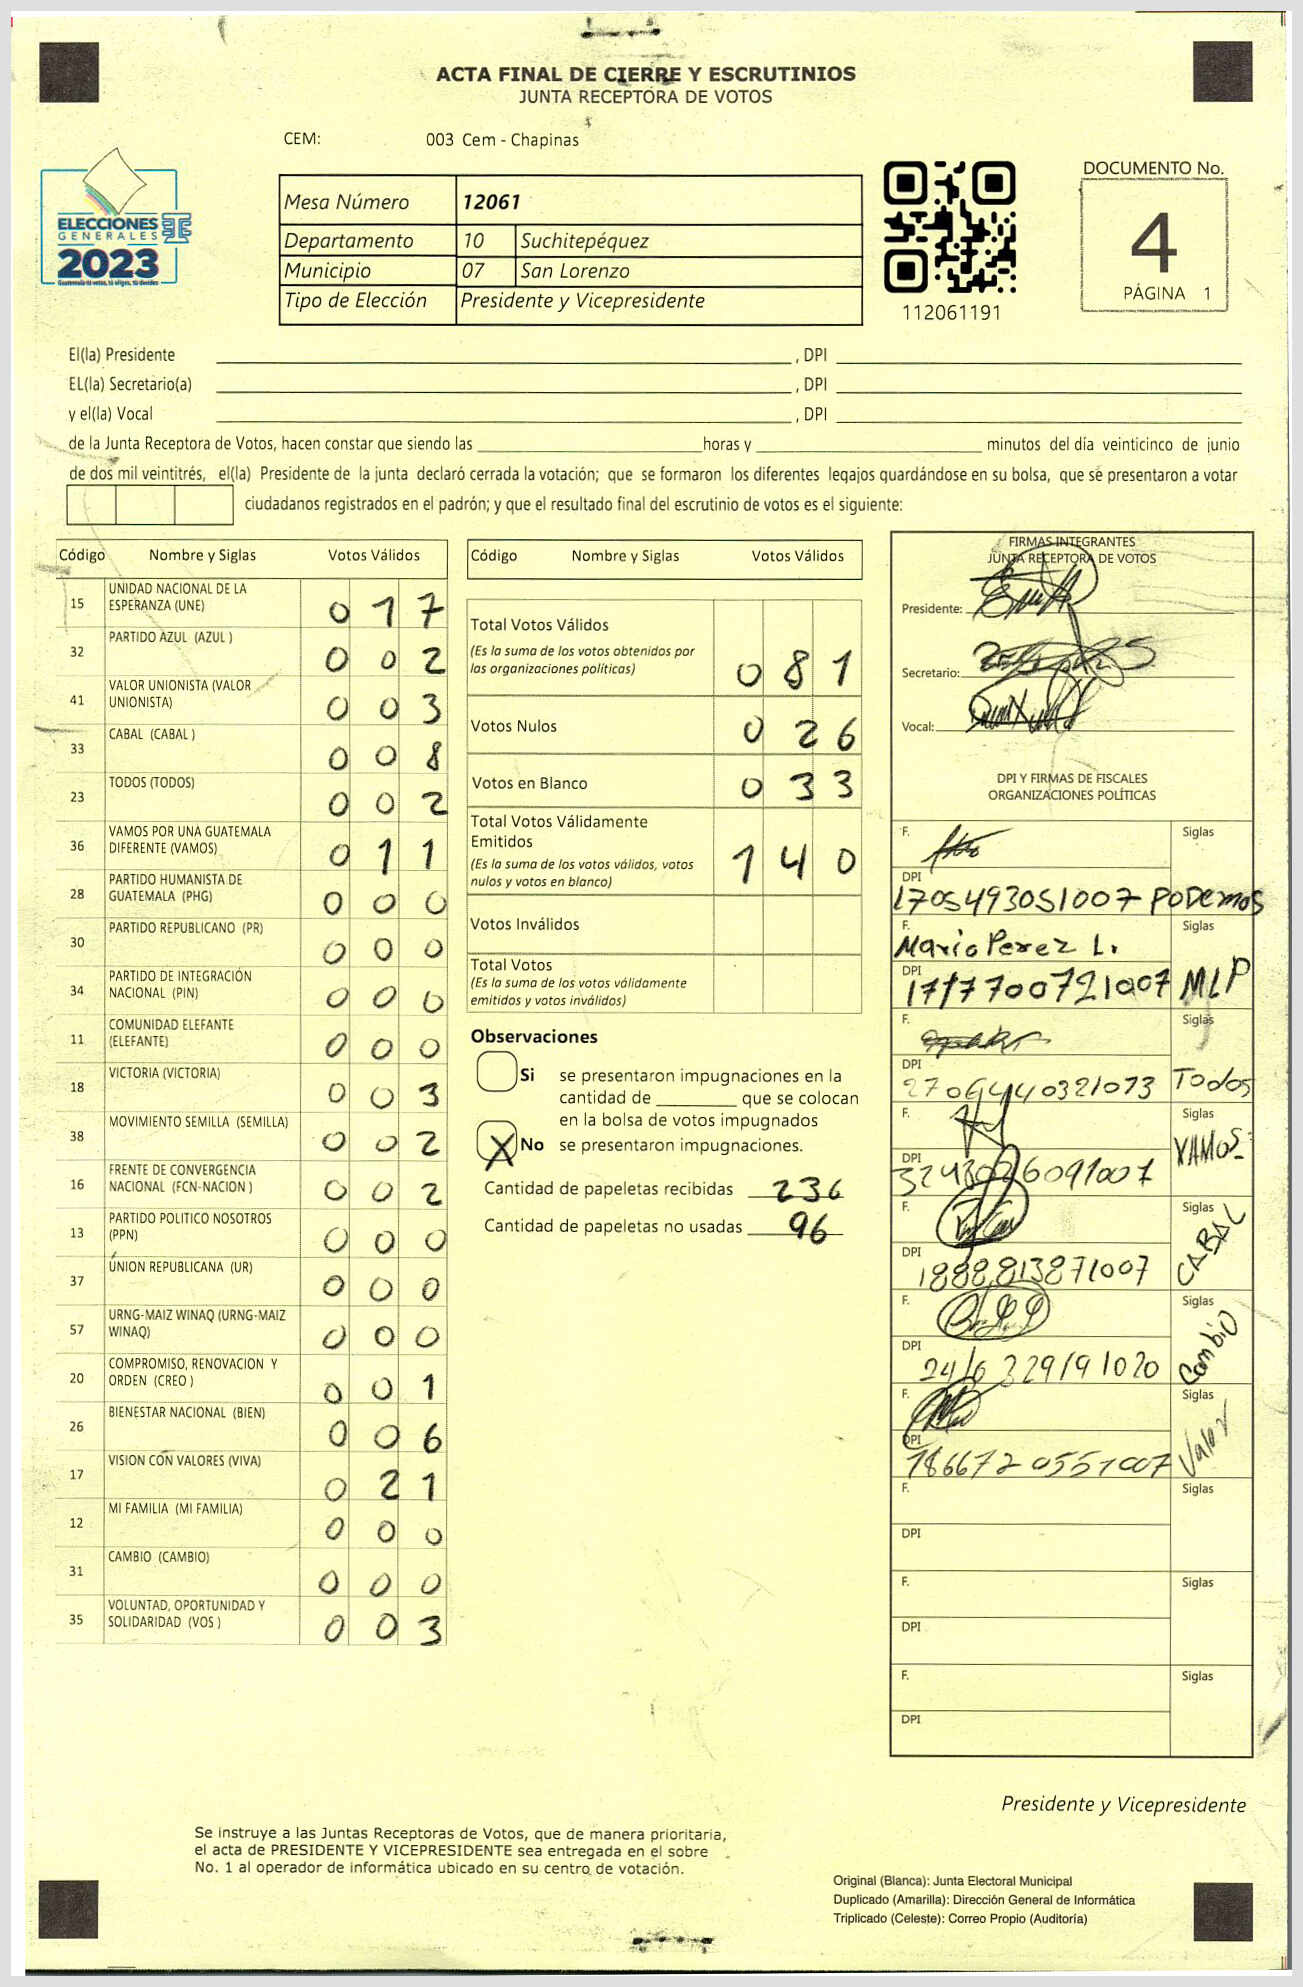 ACTA FINAL DE CIERRE Y ESCRUTINIOS
JUNTA RECEPTORA DE VOTOS
CEM: 003 Cem - Chapinas
ELECCIONES
GENERALES
2023
Guatemala tú votas, tú eliges, tú decides
Mesa Número 12061
Departamento 10 Suchitepéquez
Municipio 07 San Lorenzo
Tipo de Elección Presidente y Vicepresidente
112061191
DOCUMENTO No.
4
PÁGINA 1
El(la) Presidente , DPI
EL(la) Secretario(a) , DPI
y el(la) Vocal , DPI
de la Junta Receptora de Votos, hacen constar que siendo las horas y minutos del día veinticinco de junio
de dos mil veintitrés, el(la) Presidente de la junta declaró cerrada la votación; que se formaron los diferentes legajos quardándose en su bolsa, que se presentaron a votar
ciudadanos registrados en el padrón; y que el resultado final del escrutinio de votos es el siguiente:
Código Nombre y Siglas Votos Válidos
15 UNIDAD NACIONAL DE LA ESPERANZA (UNE) 0 1 7
32 PARTIDO AZUL (AZUL ) 0 0 2
41 VALOR UNIONISTA (VALOR UNIONISTA) 0 0 3
33 CABAL (CABAL ) 0 0 8
23 TODOS (TODOS) 0 0 2
36 VAMOS POR UNA GUATEMALA DIFERENTE (VAMOS) 0 1 1
28 PARTIDO HUMANISTA DE GUATEMALA (PHG) 0 0 0
30 PARTIDO REPUBLICANO (PR) 0 0 0
34 PARTIDO DE INTEGRACIÓN NACIONAL (PIN) 0 0 0
11 COMUNIDAD ELEFANTE (ELEFANTE) 0 0 0
18 VICTORIA (VICTORIA) 0 0 3
38 MOVIMIENTO SEMILLA (SEMILLA) 0 0 2
16 FRENTE DE CONVERGENCIA NACIONAL (FCN-NACION ) 0 0 2
13 PARTIDO POLITICO NOSOTROS (PPN) 0 0 0
37 UNION REPUBLICANA (UR) 0 0 0
57 URNG-MAIZ WINAQ (URNG-MAIZ WINAQ) 0 0 0
20 COMPROMISO, RENOVACION Y ORDEN (CREO ) 0 0 1
26 BIENESTAR NACIONAL (BIEN) 0 0 6
17 VISION CON VALORES (VIVA) 0 2 1
12 MI FAMILIA (MI FAMILIA) 0 0 0
31 CAMBIO (CAMBIO) 0 0 0
35 VOLUNTAD, OPORTUNIDAD Y SOLIDARIDAD (VOS ) 0 0 3
Código Nombre y Siglas Votos Válidos
Total Votos Válidos
(Es la suma de los votos obtenidos por
las organizaciones políticas) 0 8 1
Votos Nulos 0 2 6
Votos en Blanco 0 3 3
Total Votos Válidamente
Emitidos
(Es la suma de los votos válidos, votos
nulos y votos en blanco) 1 4 0
Votos Inválidos
Total Votos
(Es la suma de los votos válidamente
emitidos y votos inválidos)
Observaciones
Si se presentaron impugnaciones en la
cantidad de que se colocan
en la bolsa de votos impugnados
X No se presentaron impugnaciones.
Cantidad de papeletas recibidas 236
Cantidad de papeletas no usadas 96
FIRMAS INTEGRANTES
JUNTA RECEPTORA DE VOTOS
Presidente:
Secretario:
Vocal:
DPI Y FIRMAS DE FISCALES
ORGANIZACIONES POLÍTICAS
F. Siglas
DPI
1705493051007 PODEMOS
F. Siglas
Mario Perez L.
DPI
1717700721007 MLP
F. Siglas
DPI
2706440321013 Todos
F. Siglas
DPI VAMOS
F. Siglas
DPI CABAL
1888813871007
F. Siglas
DPI Cambio
F. Siglas
DPI Valor
1866720551007
F. Siglas
DPI
F. Siglas
DPI
F. Siglas
DPI
Presidente y Vicepresidente
Se instruye a las Juntas Receptoras de Votos, que de manera prioritaria,
el acta de PRESIDENTE Y VICEPRESIDENTE sea entregada en el sobre
No. 1 al operador de informática ubicado en su centro de votación.
Original (Blanca): Junta Electoral Municipal
Duplicado (Amarilla): Dirección General de Informática
Triplicado (Celeste): Correo Propio (Auditoría)